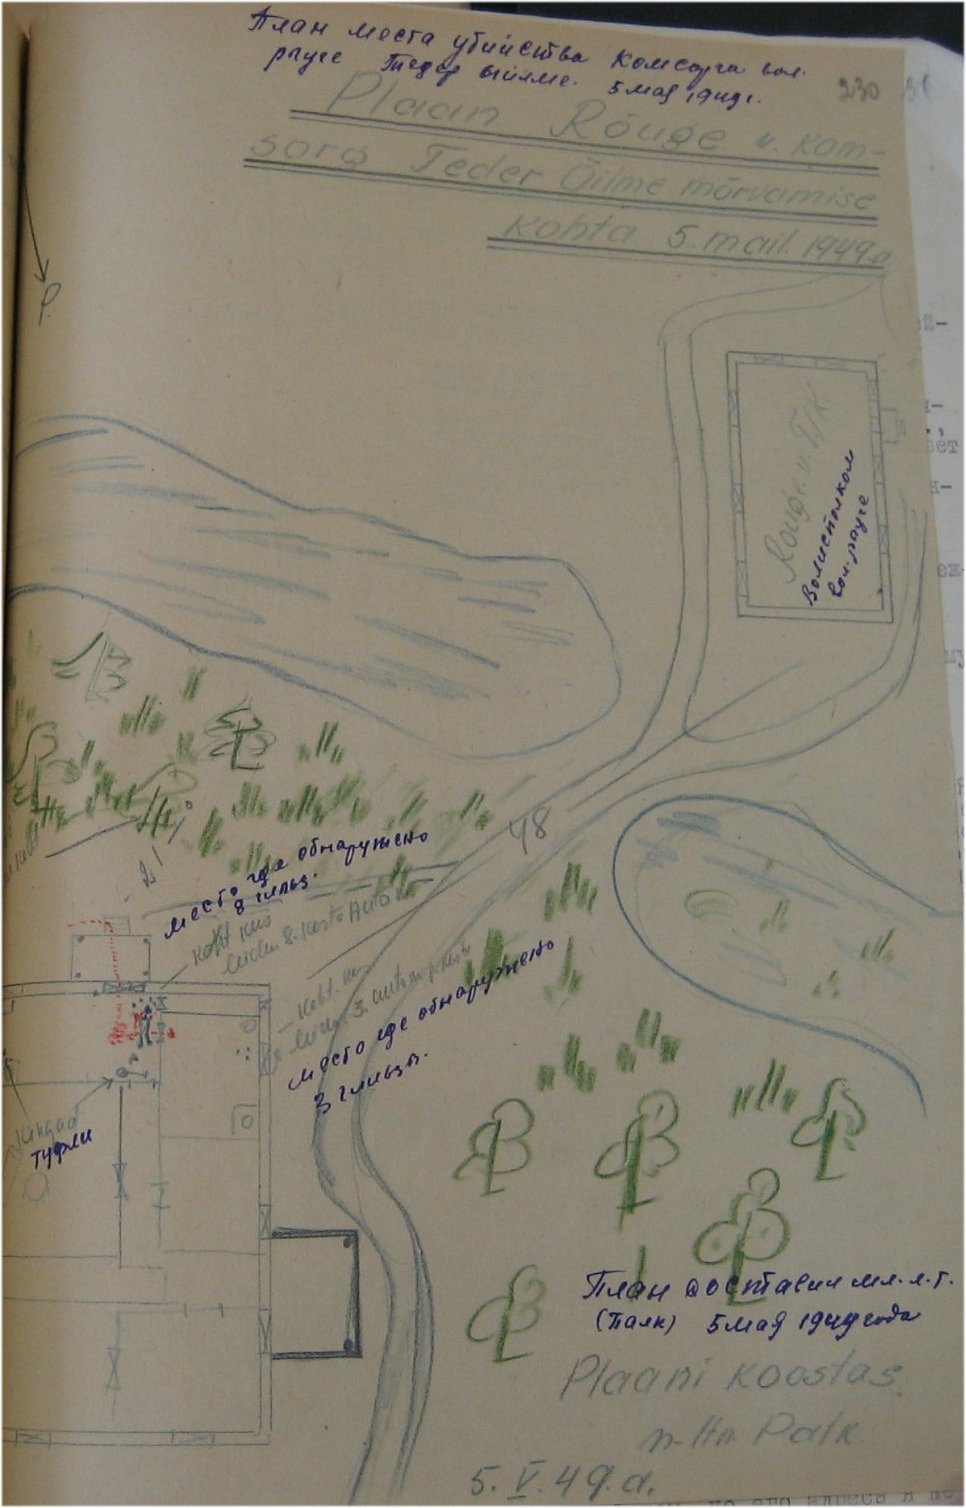 План места убийства комсорга вол.
рыуге Тедер Ыйлме. 5 мая 1949г.
230
Plaan Rõuge v. kom-
sorg Teder Õilme mõrvamise
kohta 5. mail. 1949.a
P
Rõuge v. T/K.
Волисполком
вол. рауге
48
место где обнаружено
8 гильз.
koht kus
место где обнаружено
3 гильзы.
kingad
туфли
План составил мл. л-т.
(Палк) 5 мая 1949 года
Plaani koostas
n-ltn Palk.
5. V. 49.a.